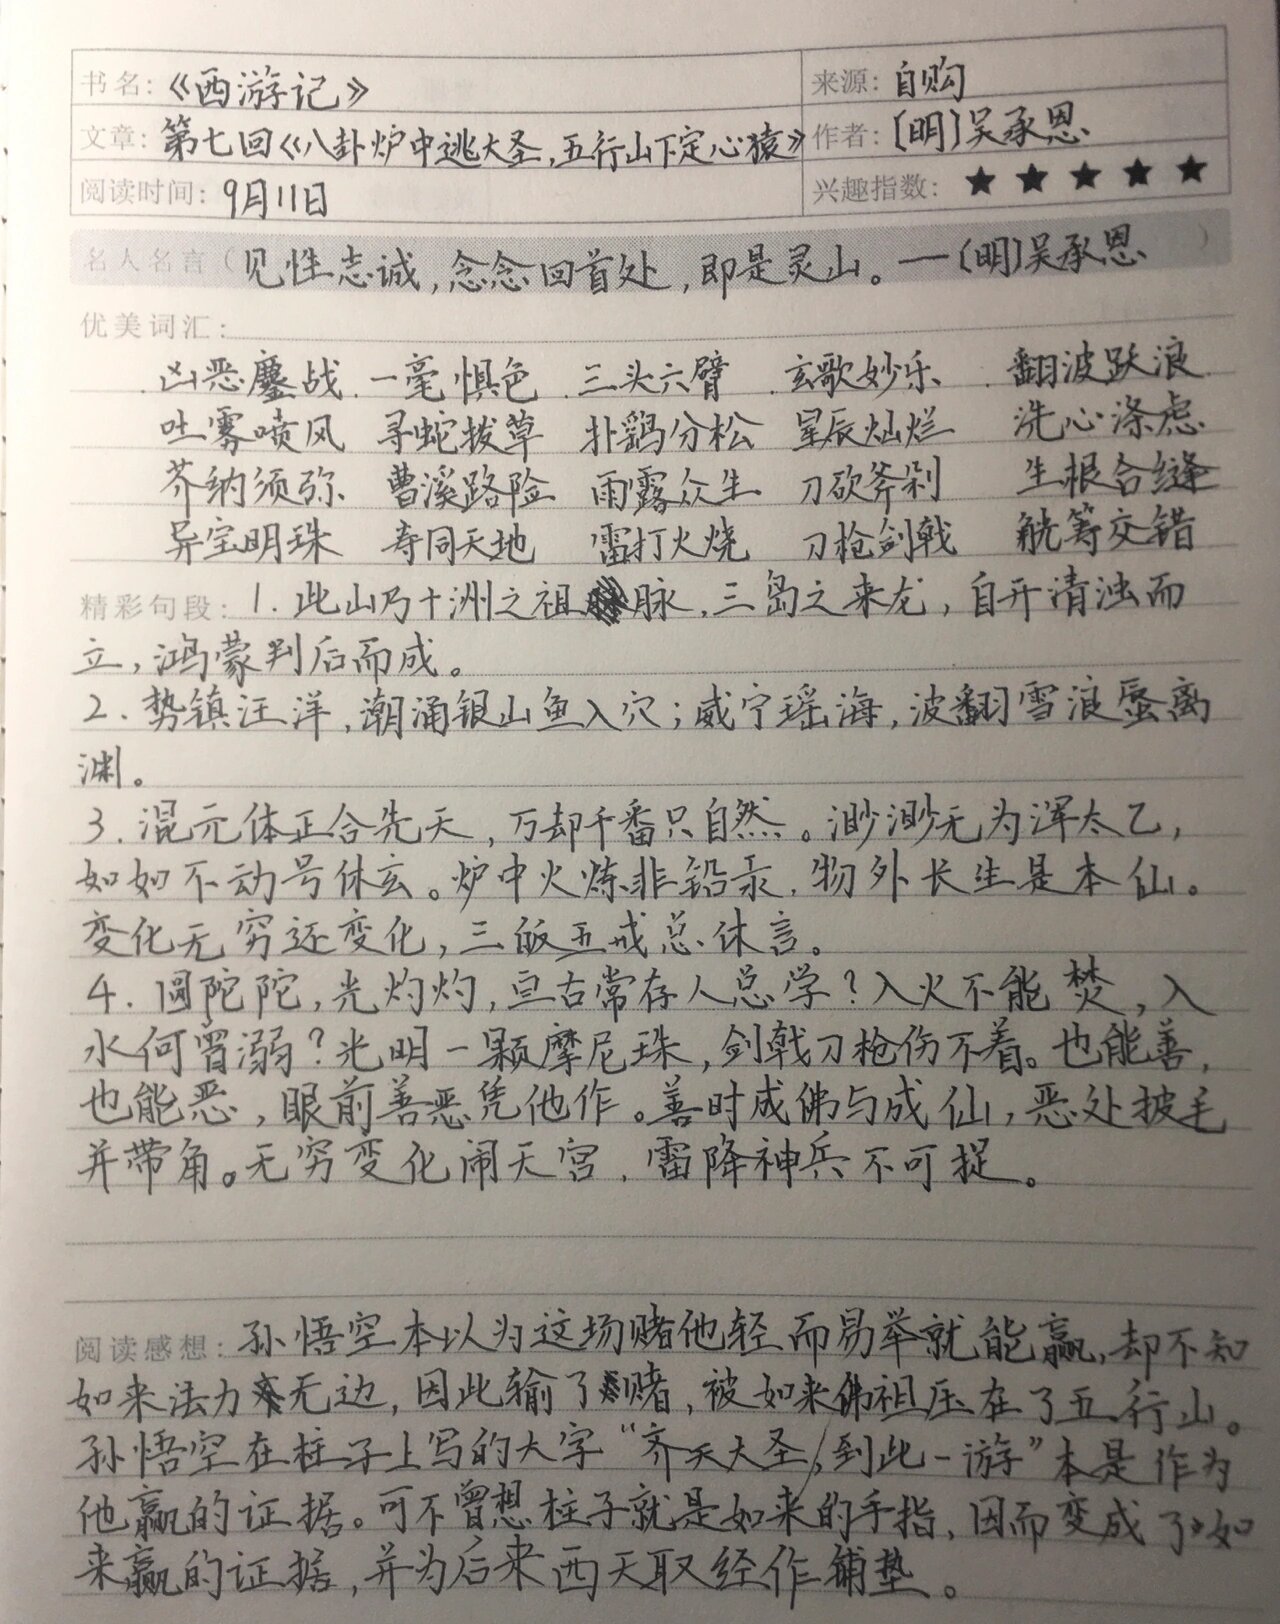 书名:《西游记》 来源:自购
文章:第七回《八卦炉中逃大圣,五行山下定心猿》 作者:[明]吴承恩
阅读时间:9月11日 兴趣指数:★★★★★
名人名言(见性志诚,念念回首处,即是灵山。—[明]吴承恩)
优美词汇:
凶恶鏖战 一毫惧色 三头六臂 玄歌妙乐 翻波跃浪
吐雾喷风 寻蛇拨草 扑鹞分松 星辰灿烂 洗心涤虑
芥纳须弥 曹溪路险 雨露众生 刀砍斧剁 生根合缝
异宝明珠 寿同天地 雷打火烧 刀枪剑戟 觥筹交错
精彩句段:1.此山乃十洲之祖脉,三岛之来龙,自开清浊而
立,鸿蒙判后而成。
2.势镇汪洋,潮涌银山鱼入穴;威宁瑶海,波翻雪浪蜃离
渊。
3.混元体正合先天,万却千番只自然。渺渺无为浑太乙,
如如不动号休玄。炉中火炼非铅汞,物外长生是本仙。
变化无穷还变化,三皈五戒总休言。
4.圆陀陀,光灼灼,亘古常存人总学?入火不能焚,入
水何曾溺?光明一颗摩尼珠,剑戟刀枪伤不着。也能善,
也能恶,眼前善恶凭他作。善时成佛与成仙,恶处披毛
并带角。无穷变化闹天宫,雷降神兵不可捉。
阅读感想:孙悟空本以为这场赌他轻而易举就能赢,却不知
如来法力无边,因此输了赌,被如来佛祖压在了五行山。
孙悟空在柱子上写的大字“齐天大圣,到此一游”本是作为
他赢的证据。可不曾想柱子就是如来的手指,因而变成了如
来赢的证据,并为后来西天取经作铺垫。